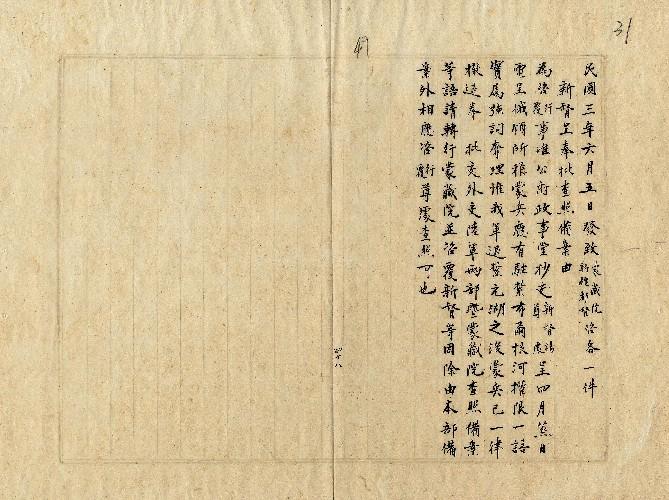 31
民國三年六月五日發致蒙藏院新疆都督咨各一件
新督呈奉批查照備案由
為咨行覆事准公府政事堂抄交新督尊處呈四月蒸日
電呈俄領所稱蒙兵應有駐紮布爾根河權限一語
實屬強詞奪理惟我軍退紮元湖之後蒙兵已一律
撤退奉 批交外交陸軍兩部暨蒙藏院查照備案
等語請轉行蒙藏院並咨覆新督等因除由本部備
案外相應咨行覆尊處查照可也